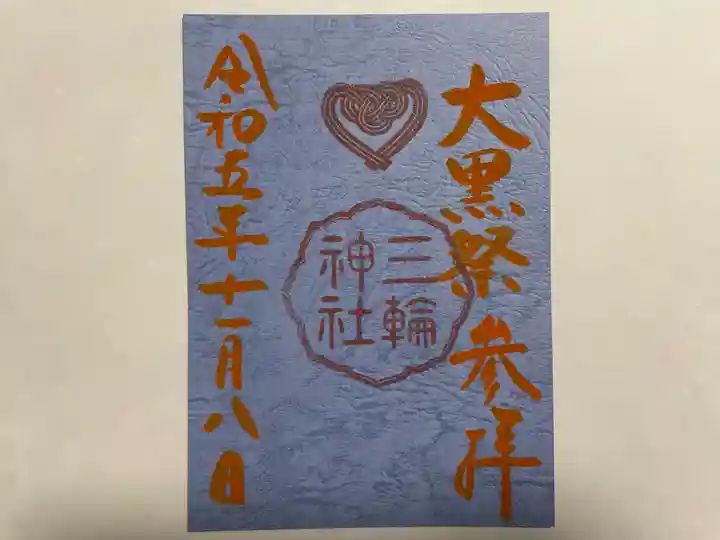 大黒祭参拝
三輪
神社
令和五年十一月八日